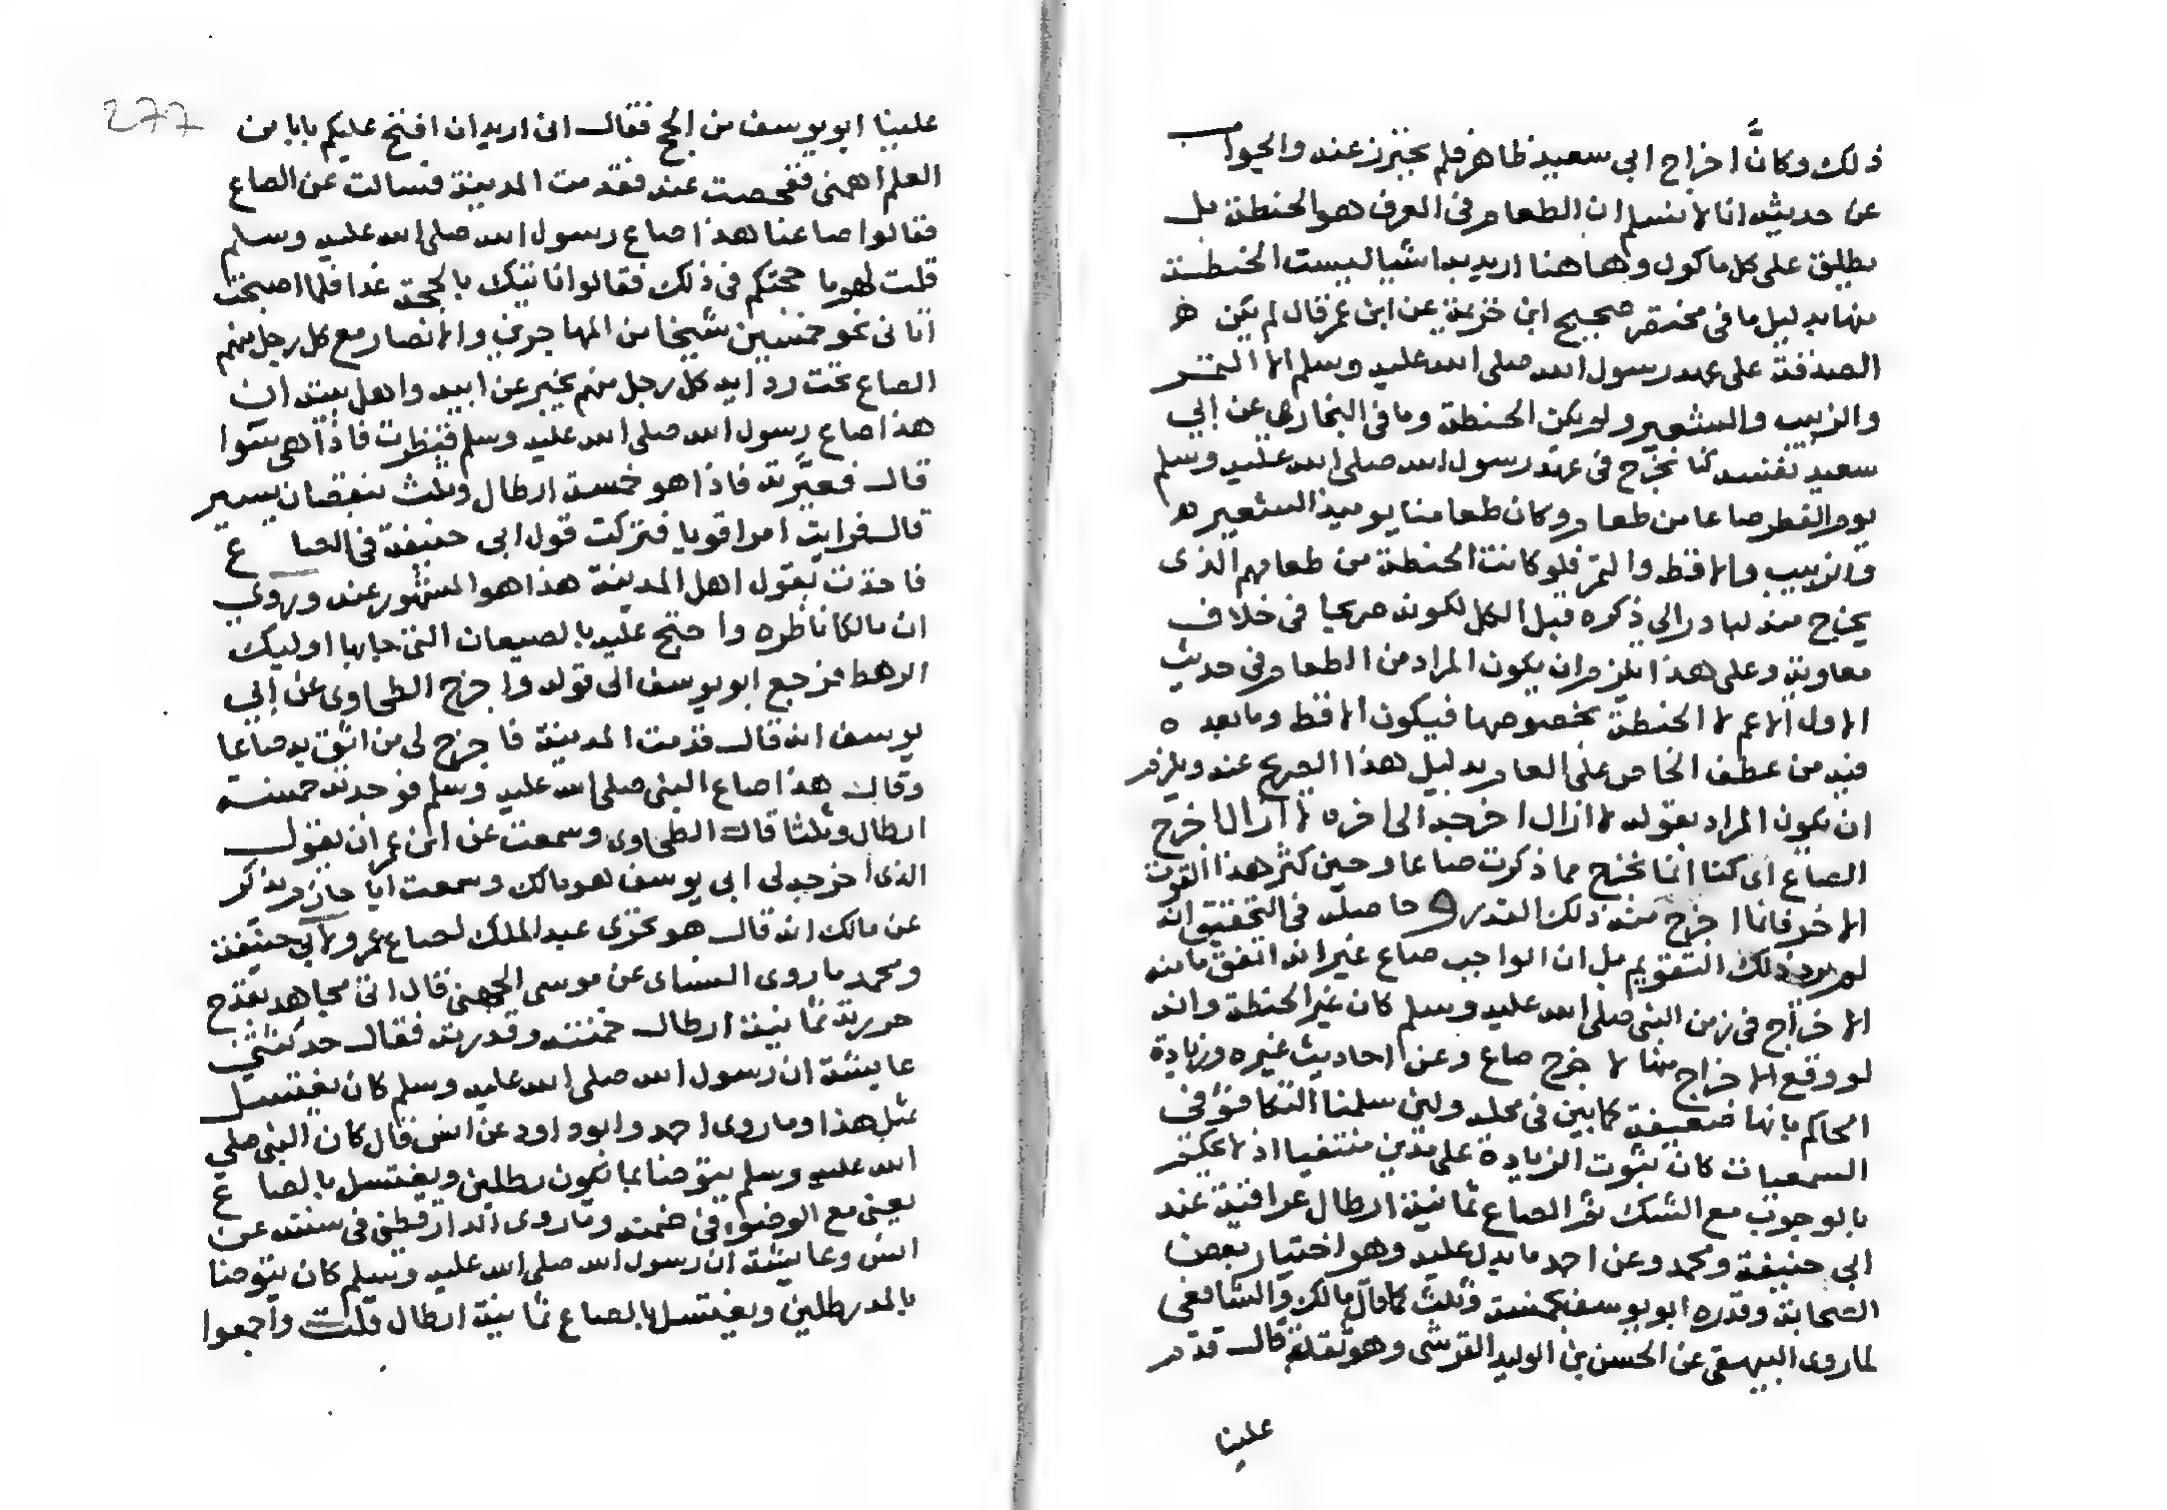 ذلك وكانّ اخراج ابي سعيد ظاهر فلم يحترز عنه والجواب
عن حديثه انا لا نسلم ان الطعام في العرف هو الحنطة بل
يطلق على كل ماكول وهاهنا اريد به اشيا ليست الحنطة
منها بدليل ما في مختصر صحيح ابن خزيمة عن ابن عمر قال لم يكن
الصدقة على عهد رسول الله صلى الله عليه وسلم الا التمر
والزبيب والشعير ولم يكن الحنطة وما في البخاري عن ابي
سعيد نفسه كنا نخرج في عهد رسول الله صلى الله عليه وسلم
يوم الفطر صاعا من طعام وكان طعامنا يوميذ الشعير
والزبيب والاقط والتمر فلو كانت الحنطة من طعامهم الذى
يخرج منه لبادر الى ذكره قبل الكل لكونه صريحا في خلاف
معاوية وعلى هذا يلزم ان يكون المراد من الطعام في حديث
الاول الاعم لا الحنطة بخصوصها فيكون الاقط وما بعده
فيه من عطف الخاص على العام بدليل هذا الصريح عنه ويلزم
ان يكون المراد بقوله لا ازال اخرجه الى اخره لا ازال اخرج
الصاع اى كنا انما نخرج مما ذكرت صاعا وحين كثر هذا القوت
الاخر فانما اخرج منه ذلك القدر وحاصله في التحقيق انه
لم يرد ذلك التقويم بل ان الواجب صاع غير انه اتفق ما منه
الاخراج في زمن النبي صلى الله عليه وسلم كان غير الحنطة وانه
لو وقع الاخراج منها لاخرج صاع وعن احاديث غيره وزيادة
الحاكم بانها ضعيفة كما بين في محله ولين سلمنا التكافؤ في
السمعيات كان ثبوت الزيادة على مدين منتفيا اذ لا يحكم
بالوجوب مع الشك ثم الصاع ثمانية ارطال عراقية عند
ابى حنيفة ومحمد وعن احمد ما يدل عليه وهو اختيار بعض
الصحابة وقدره ابو يوسف بخمسة وثلث كما قال مالك والشافعي
لما روى البيهقي عن الحسن بن الوليد القرشي وهو ثقة قال قدم
علينا
277
علينا ابو يوسف من الحج فقال انى اريد ان افتح عليكم بابا من
العلم اهمنى ففحصت عنه فقدمت المدينة فسالت عن الصاع
فقالوا صاعنا هذا صاع رسول الله صلى الله عليه وسلم
قلت لهم ما حجتكم في ذلك فقالوا ناتيك بالحجة غدا فلما اصبحت
اتانى نحو خمسين شيخا من المهاجرين والانصار مع كل رجل منهم
الصاع تحت ردايه كل رجل منهم يخبر عن ابيه واهل بيته ان
هذا صاع رسول الله صلى الله عليه وسلم فنظرت فاذا هى سوا
قال فعيّرته فاذا هو خمسة ارطال وثلث بنقصان يسير
قال فرايت امرا قويا فتركت قول ابى حنيفة في الصاع
فاخذت بقول اهل المدينة هذا هو المشهور عنه وروي
ان مالكا ناظره واحتج عليه بالصيعان التي جا بها اوليك
الرهط فرجع ابو يوسف الى قوله واخرج الطحاوى عن ابي
يوسف انه قال قدمت المدينة فاخرج لى من اثق به صاعا
وقال هذا صاع النبي صلى الله عليه وسلم فوجدته خمسة
ارطال وثلثا قال الطحاوى وسمعت عن ابن عمران يقول
الذى اخرجه لى ابى يوسف هو مالك وسمعت ابا حازم يذكر
عن مالك انه قال هو تحرى عبد الملك لصاع عمر ولابي حنيفة
ومحمد ما روى النساى عن موسى الجهنى قال اتى مجاهد بقدح
حررته ثمانية ارطال خمنته وقدرته فقال حدثتني
عايشة ان رسول الله صلى الله عليه وسلم كان يغتسل
بمثل هذا وما روى احمد وابو داود عن انس قال كان النبي صلى
الله عليه وسلم يتوضا بما يكون رطلين ويغتسل بالصاع
يعنى مع الوضوء في ضمنه وما روى الدارقطنى في سننه عن
انس وعايشة ان رسول الله صلى الله عليه وسلم كان يتوضا
بالمد رطلين ويغتسل بالصاع ثمانية ارطال قلت واجمعوا